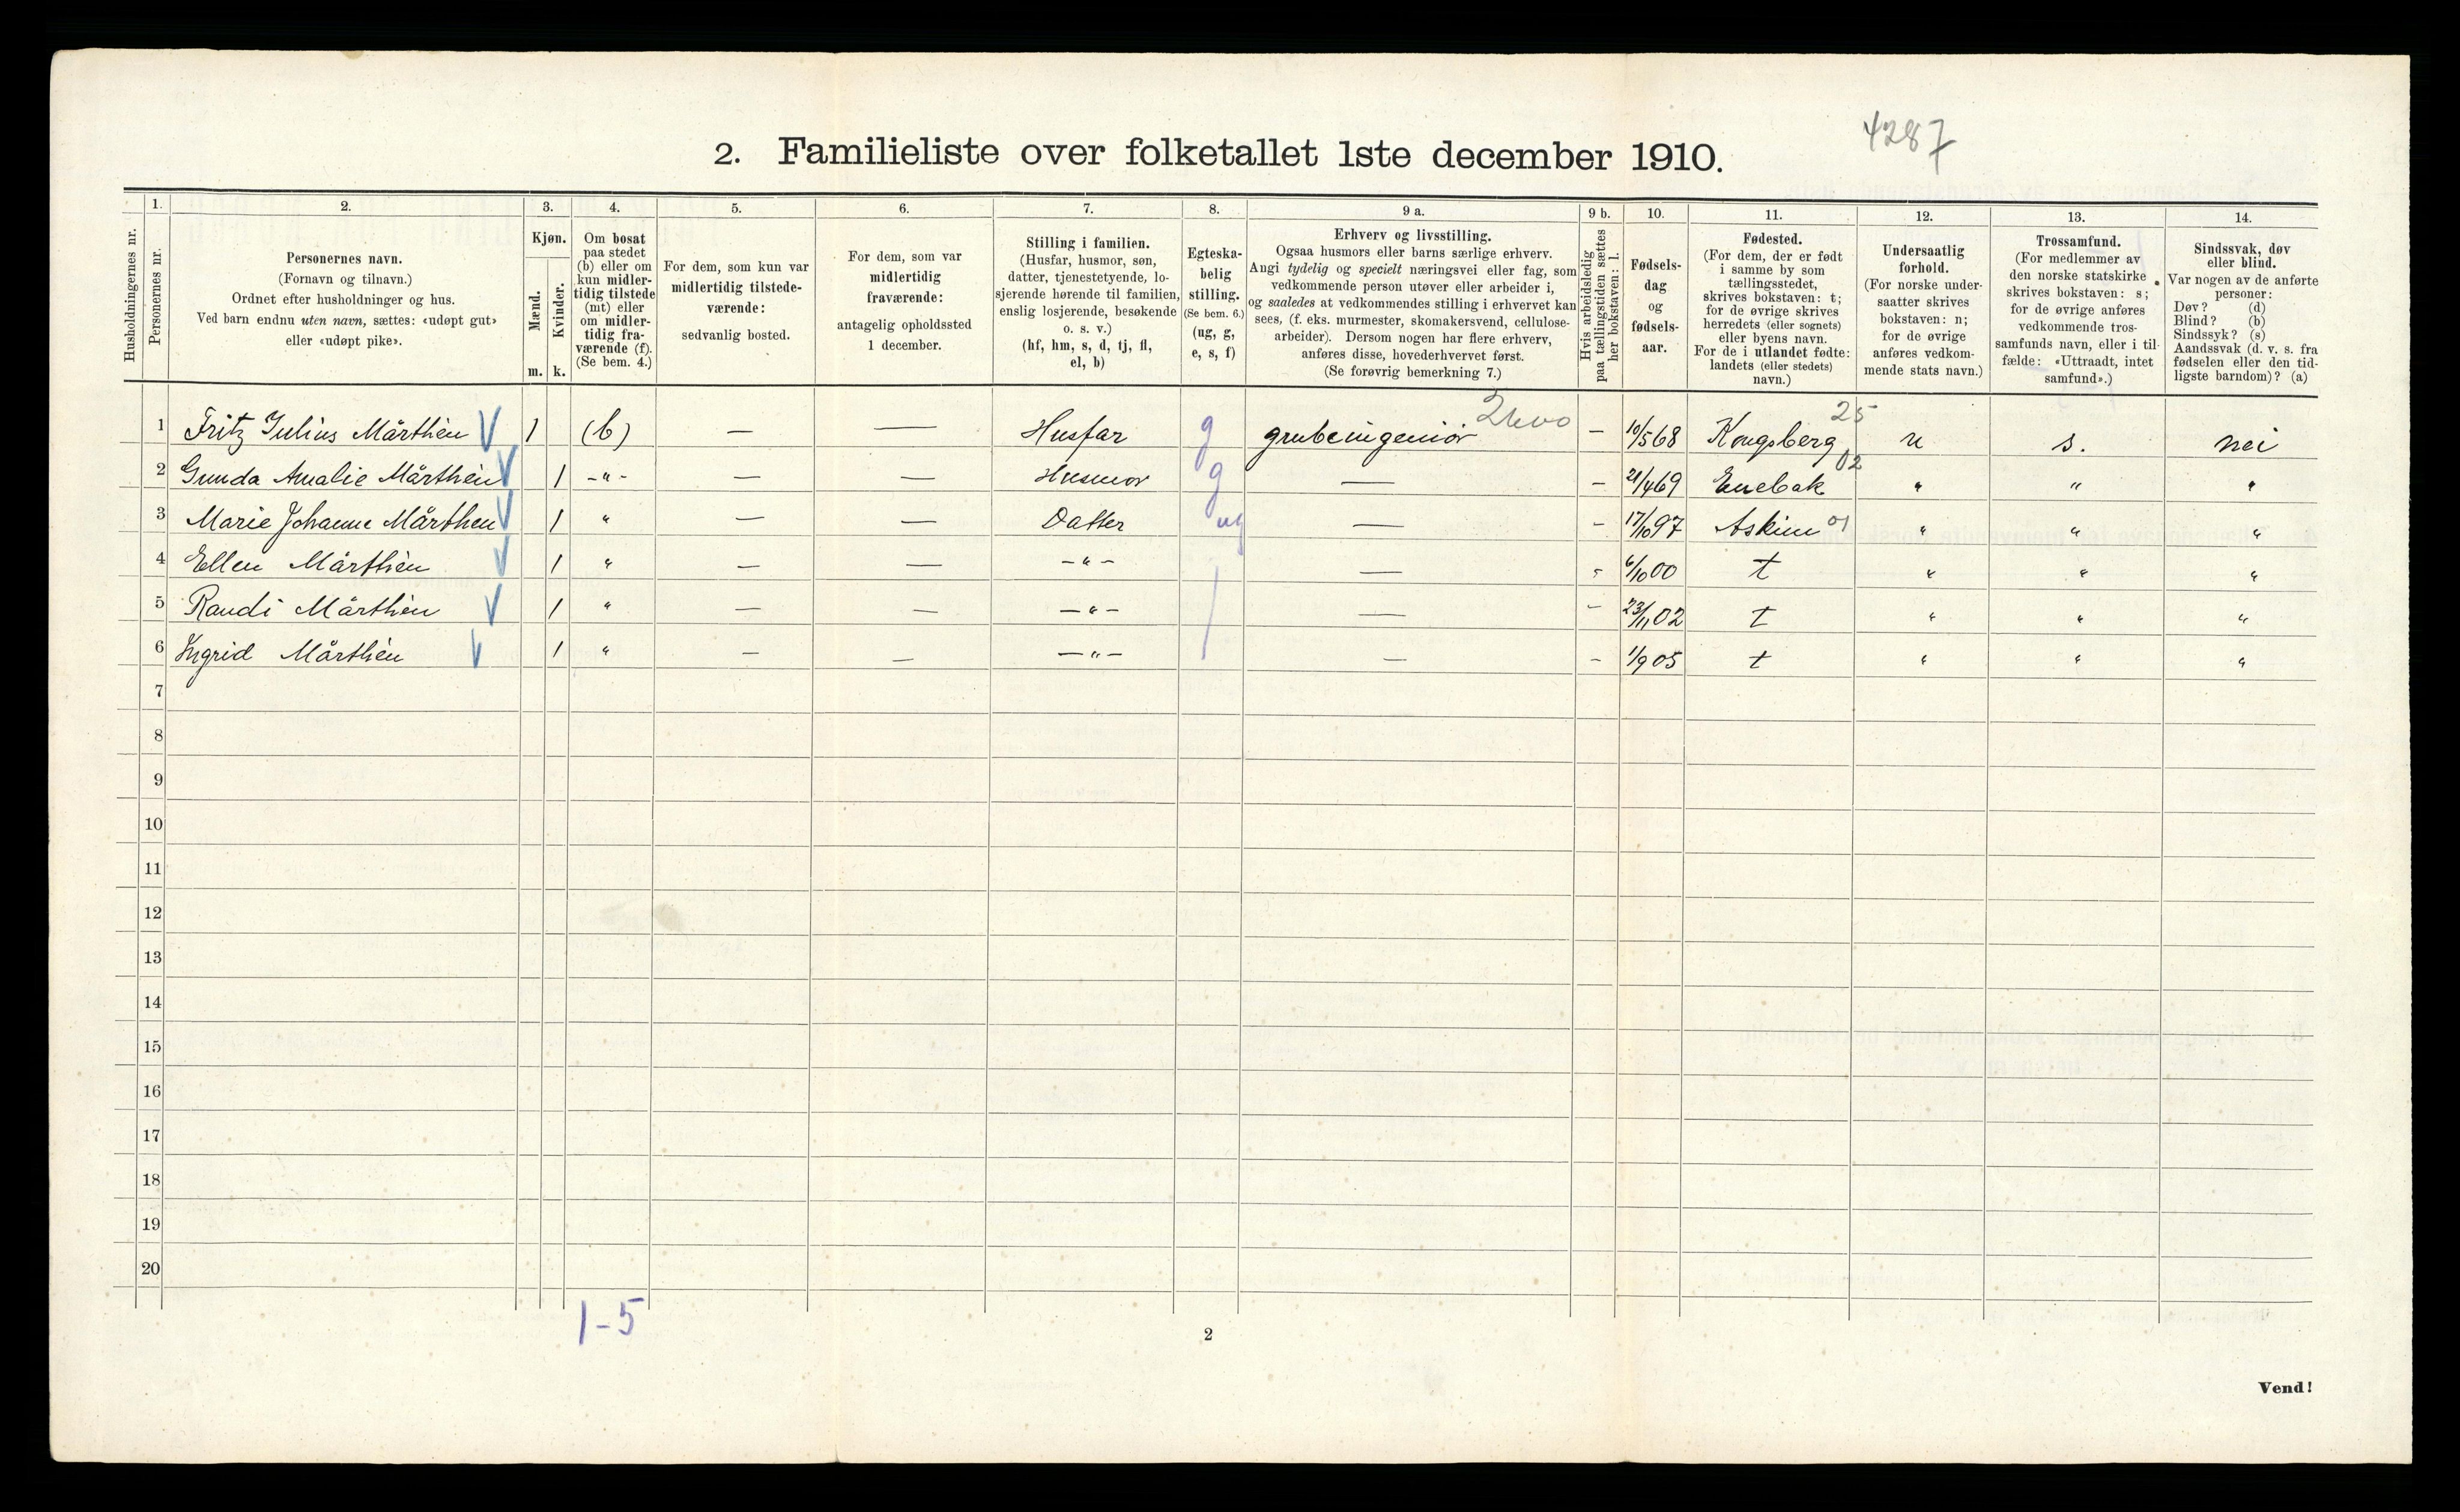 4287
2. Familieliste over folketallet 1ste december 1910.
Husholdningernes nr.
1. Personernes nr.
2. Personernes navn.
(Fornavn og tilnavn.)
Ordnet efter husholdninger og hus.
Ved barn endnu uten navn, sættes: «udøpt gut»
eller «udøpt pike».
3. Kjøn.
Mænd. Kvinder.
m. k.
4. Om bosat
paa stedet
(b) eller om
kun midler-
tidig tilstede
(mt) eller
om midler-
tidig fra-
værende (f).
(Se bem. 4.)
5. For dem, som kun var
midlertidig tilstede-
værende:
sedvanlig bosted.
6. For dem, som var
midlertidig
fraværende:
antagelig opholdssted
1 december.
7. Stilling i familien.
(Husfar, husmor, søn,
datter, tjenestetyende, lo-
sjerende hørende til familien,
enslig losjerende, besøkende
o. s. v.)
(hf, hm, s, d, tj, fl,
el, b)
8. Egteska-
belig
stilling.
(Se bem. 6.)
(ug, g,
e, s, f)
9 a. Erhverv og livsstilling.
Ogsaa husmors eller barns særlige erhverv.
Angi tydelig og specielt næringsvei eller fag, som
vedkommende person utøver eller arbeider i,
og saaledes at vedkommendes stilling i erhvervet kan
sees, (f. eks. murmester, skomakersvend, cellulose-
arbeider). Dersom nogen har flere erhverv,
anføres disse, hovederhvervet først.
(Se forøvrig bemerkning 7.)
9 b. Hvis arbeidsledig
paa tællingstiden sættes
her bokstaven: l.
10. Fødsels-
dag
og
fødsels-
aar.
11. Fødested.
(For dem, der er født
i samme by som
tællingsstedet,
skrives bokstaven: t;
for de øvrige skrives
herredets (eller sognets)
eller byens navn.
For de i utlandet fødte:
landets (eller stedets)
navn.)
12. Undersaatlig
forhold.
(For norske under-
saatter skrives
bokstaven: n;
for de øvrige
anføres vedkom-
mende stats navn.)
13. Trossamfund.
(For medlemmer av
den norske statskirke
skrives bokstaven: s;
for de øvrige anføres
vedkommende tros-
samfunds navn, eller i til-
fælde: «Uttraadt, intet
samfund».)
14. Sindssvak, døv
eller blind.
Var nogen av de anførte
personer:
Døv? (d)
Blind? (b)
Sindssyk? (s)
Aandssvak (d. v. s. fra
fødselen eller den tid-
ligste barndom)? (a)
1 Fritz Julius Mårthèn 1 (b) — — Husfar g grubeingeniør — 10/5 68 Kongsberg 25 n s. nei
2 Gunda Amalie Mårthèn 1 -"- — — Husmor g — – 21/4 69 Enebak 02 " " "
3 Marie Johanne Mårthen 1 " — — Datter ug — – 17/10 97 Askim 01 " " "
4 Ellen Mårthèn 1 " — — -"- — – 6/10 00 t " " "
5 Randi Mårthèn 1 " — — -"- — – 23/11 02 t " " "
6 Ingrid Mårthèn 1 " — — -"- — – 1/9 05 t " " "
7
8
9
10
11
12
13
14
15
16
17
18
19
20
1-5
2
Vend!